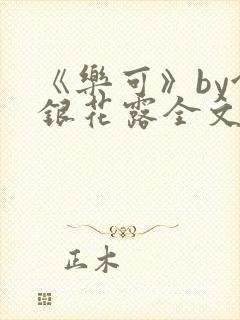 《樂可》by
銀花露全文
正木